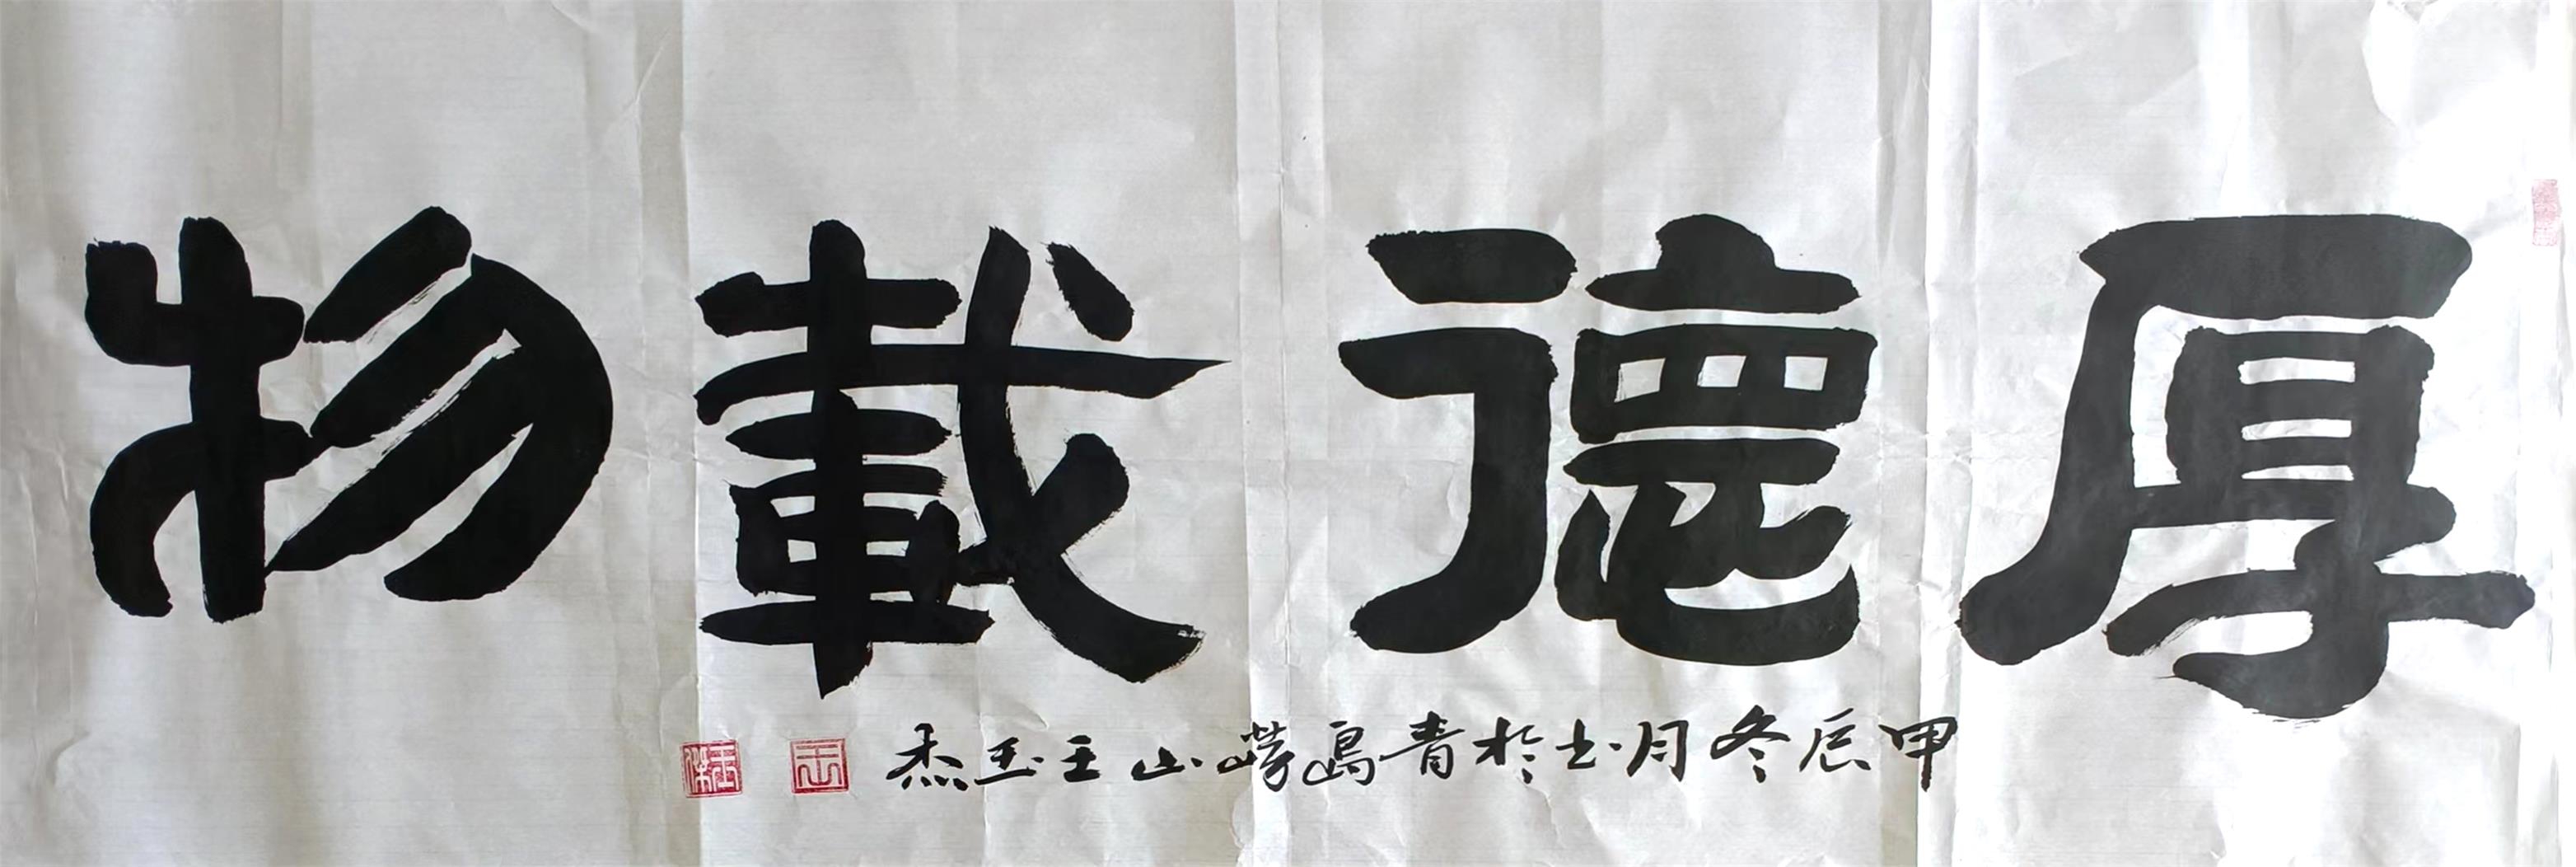 厚德載物
甲辰冬月书於青島嶗山王玉杰